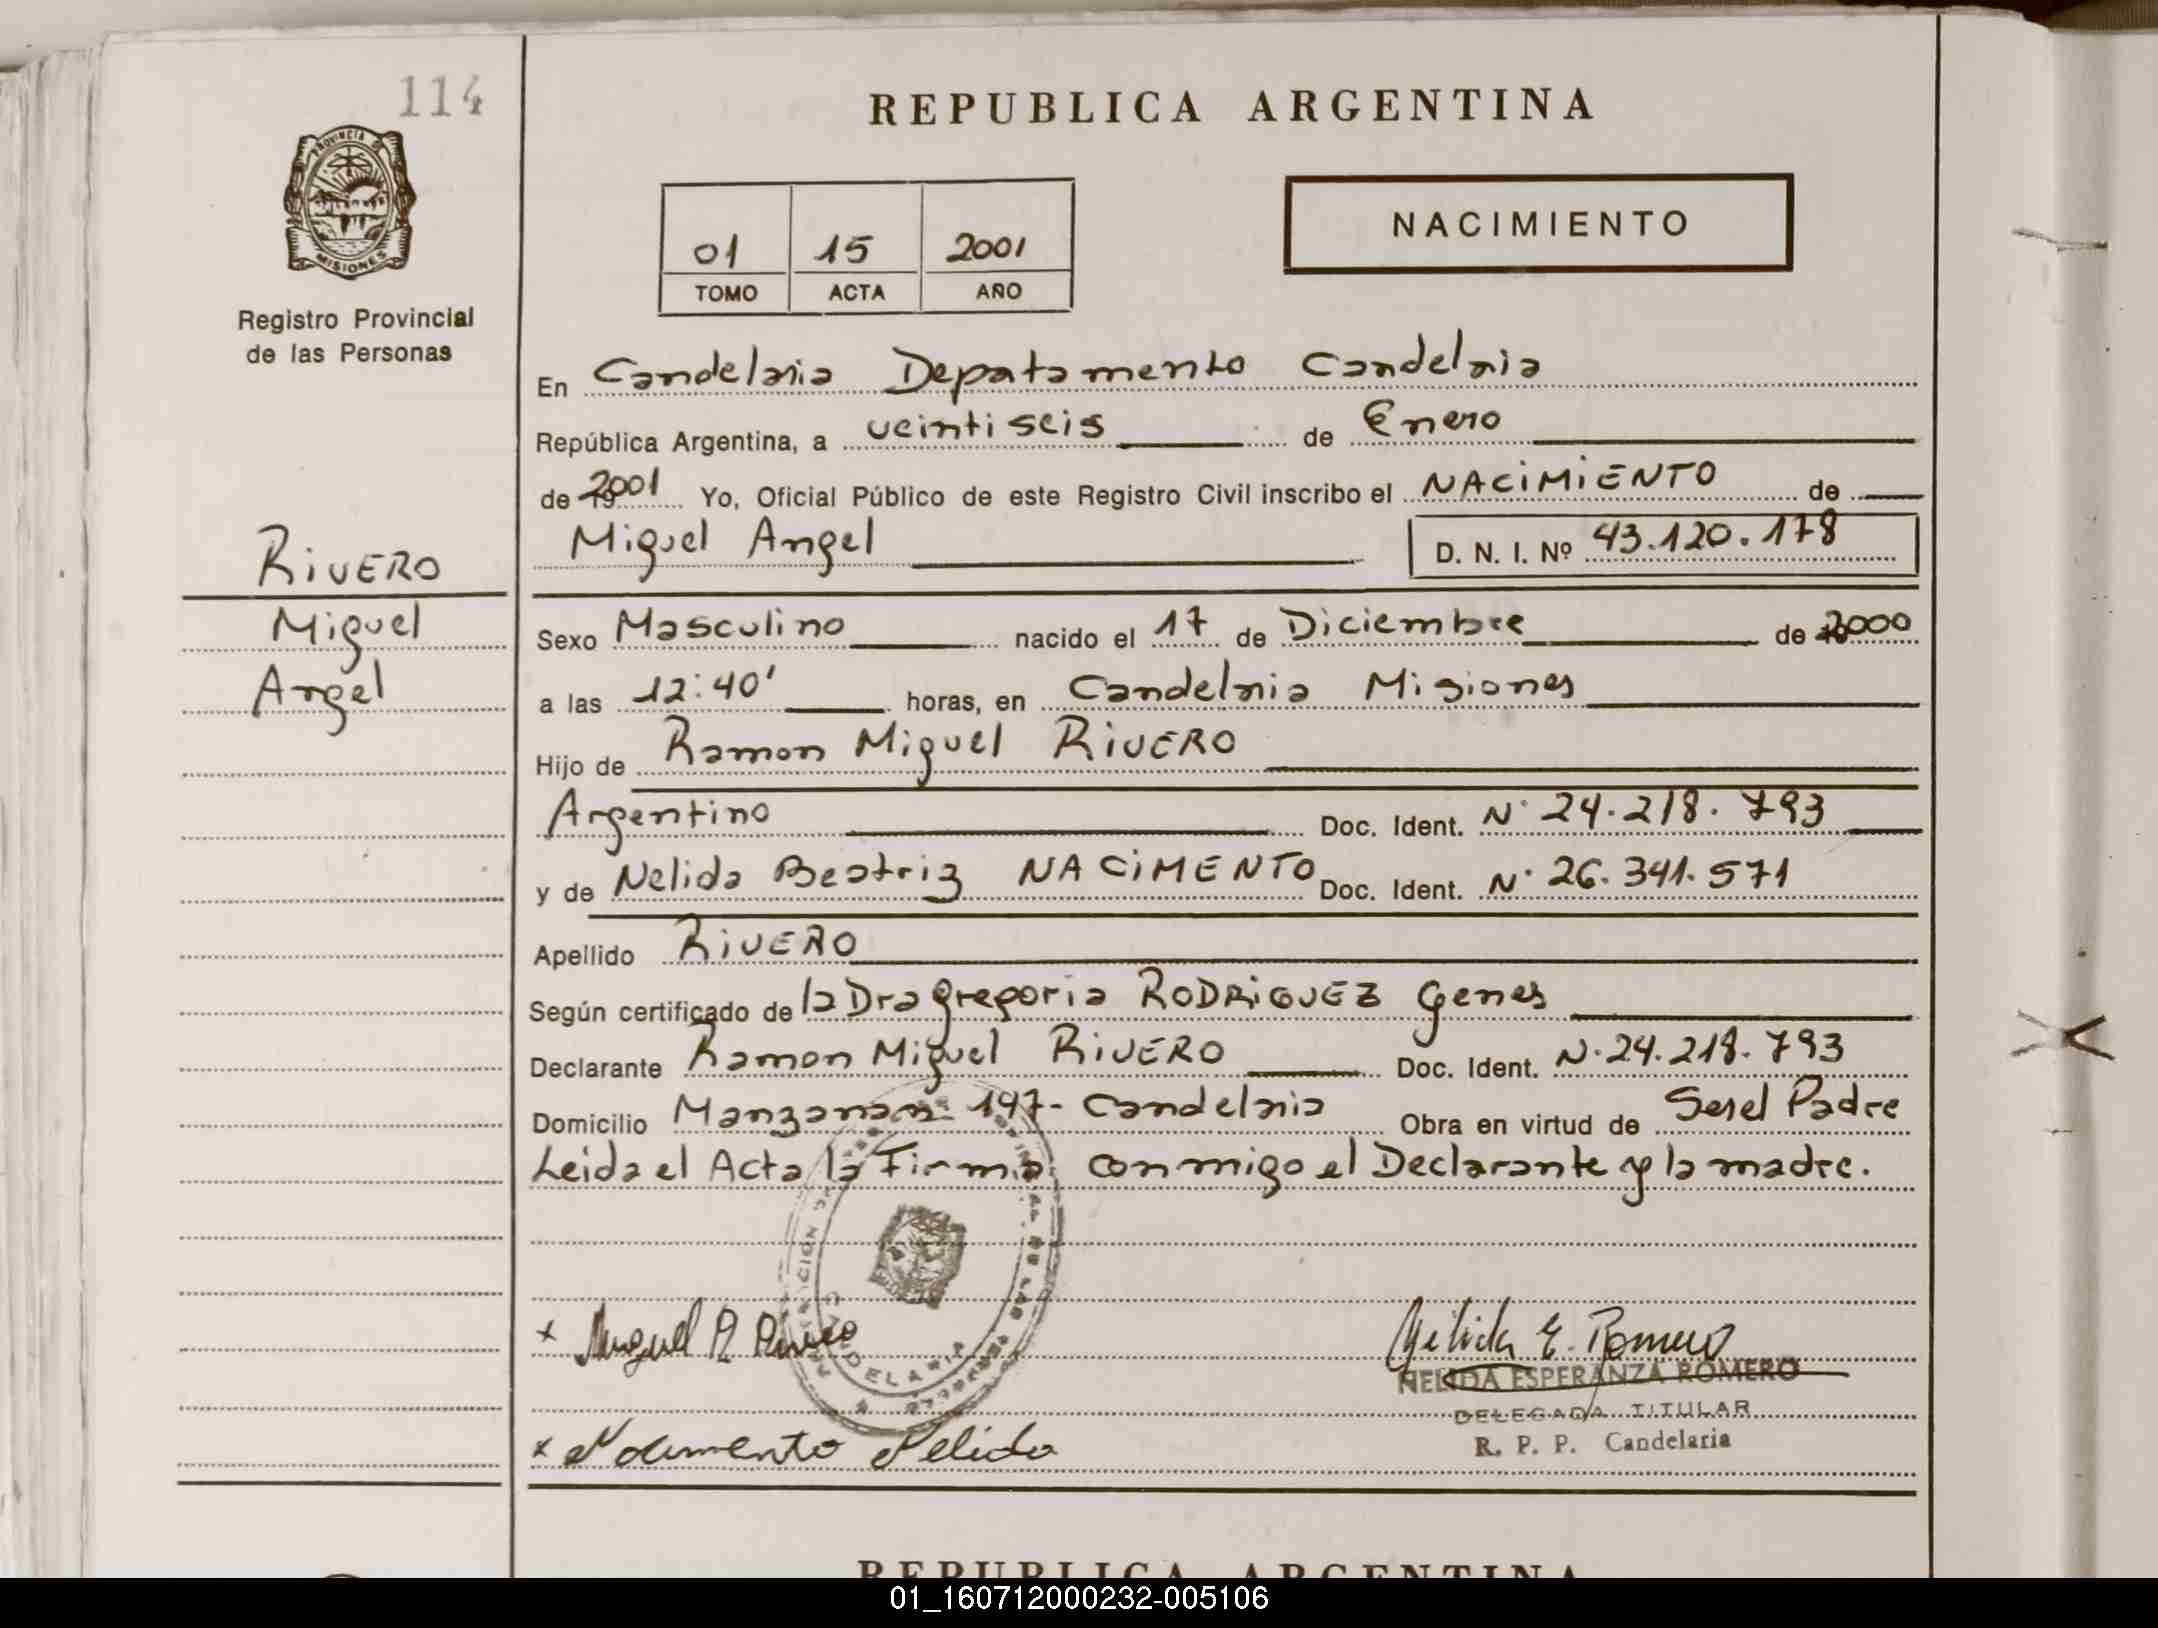 114
REPUBLICA ARGENTINA
PROVINCIA DE
MISIONES
Registro Provincial
de las Personas
01 15 2001
TOMO ACTA AÑO
NACIMIENTO
En Candelaria Depatamento Candelaria
República Argentina, a veintiseis de Enero
de 2001 Yo, Oficial Público de este Registro Civil inscribo el NACIMIENTO de
Miguel Angel D. N. I. Nº 43.120.178
RIVERO
Miguel
Angel
Sexo Masculino nacido el 17 de Diciembre de 2000
a las 12:40' horas, en Candelaria Misiones
Hijo de Ramon Miguel RIVERO
Argentino Doc. Ident. N° 24.218.793
y de Nelida Beatriz NACIMENTO Doc. Ident. N° 26.341.571
Apellido RIVERO
Según certificado de la Dra Gregoria RODRIGUEZ Genes
Declarante Ramon Miguel RIVERO Doc. Ident. N. 24.218.793
Domicilio 197- Candelaria Obra en virtud de Ser el Padre
Leida el Acta la Firma conmigo el Declarante y la madre.
CANDELARIA
x Miguel R Rivero
Nelida E. Romero
NELIDA ESPERANZA ROMERO
DELEGADA TITULAR
R. P. P. Candelaria
x Nacimento Nelida
REPUBLICA ARGENTINA
01_160712000232-005106